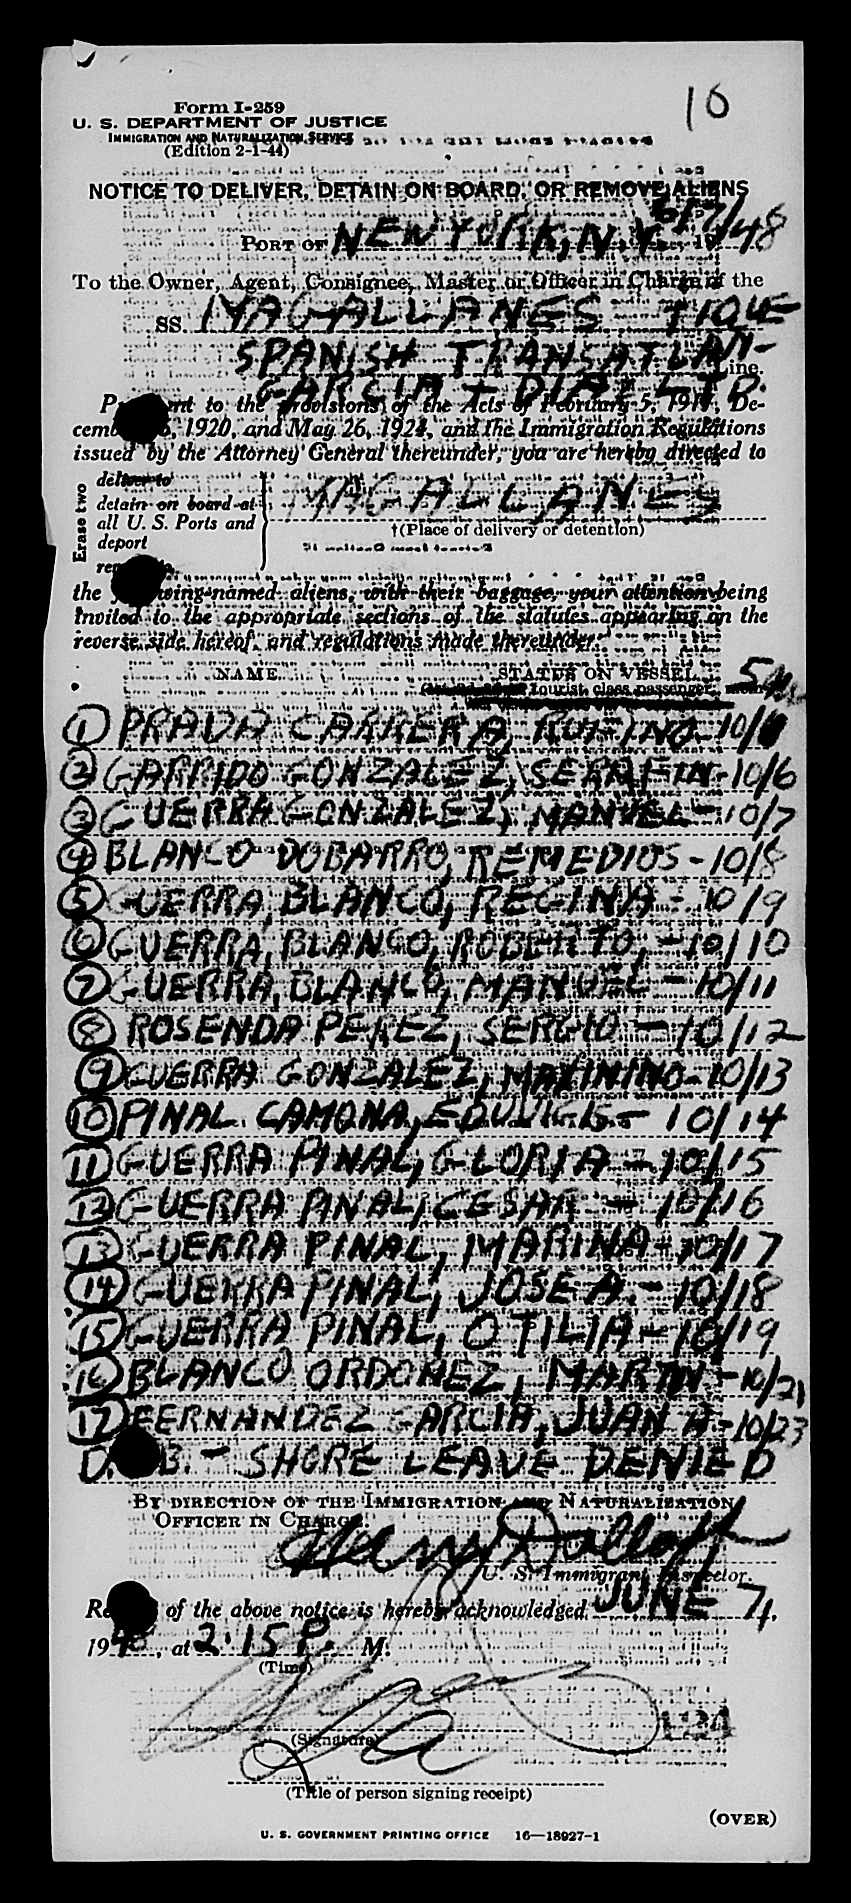 10
Form I-259
U. S. DEPARTMENT OF JUSTICE
IMMIGRATION AND NATURALIZATION SERVICE
(Edition 2-1-44)
NOTICE TO DELIVER, DETAIN ON BOARD, OR REMOVE ALIENS
6/7/48
PORT OF NEW YORK, N.Y., 1948
To the Owner, Agent, Consignee, Master or Officer in Charge of the
SS. MAGALLANES
SPANISH TRANSATLAN- Line.
GARCIA + DIAZ LTD.
to the provisions of the Acts of February 5, 1917, De-
1920, and May 26, 1924, and the Immigration Regulations
issued by the Attorney General thereunder, you are hereby directed to
Erase two
deliver to
detain on board at
all U. S. Ports and
deport
MAGALLANES
†(Place of delivery or detention)
the named aliens, with their baggage, your attention being
invited to the appropriate sections of the statutes appearing on the
reverse side hereof, and regulations made thereunder.
NAME STATUS ON VESSEL
tourist class passenger
① PRADA CARRERA, RUFINO-10/
② GARRIDO GONZALEZ, SERAFIN-10/6
③ GUERRA GONZALEZ, MANUEL-10/7
④ BLANCO DOBARRO, REMEDIOS-10/8
⑤ GUERRA, BLANCO, REGINA-10/9
⑥ GUERRA, BLANCO, ROBERTO,-10/10
⑦ GUERRA, BLANCO, MANUEL-10/11
⑧ ROSENDA PEREZ, SERGIO-10/12
⑨ GUERRA GONZALEZ, MAXIMINO-10/13
⑩ PINAL CAMONA, EDUVIGIS-10/14
⑪ GUERRA PINAL, GLORIA-10/15
⑫ GUERRA PINAL, CESAR-10/16
⑬ GUERRA PINAL, MARINA-10/17
⑭ GUERRA PINAL, JOSE A.-10/18
⑮ GUERRA PINAL, OTILIA-10/19
⑯ BLANCO ORDONEZ, MARTIN-10/21
⑰ FERNANDEZ GARCIA, JUAN A-10/23
D. B. - SHORE LEAVE DENIED
BY DIRECTION OF THE IMMIGRATION AND NATURALIZATION
OFFICER IN CHARGE:
U. S. Immigrant Inspector.
of the above notice is hereby acknowledged JUNE 7,
1948, at 2:15 P. M.
(Time)
(Signature)
(Title of person signing receipt)
(OVER)
U. S. GOVERNMENT PRINTING OFFICE 16—18927-1